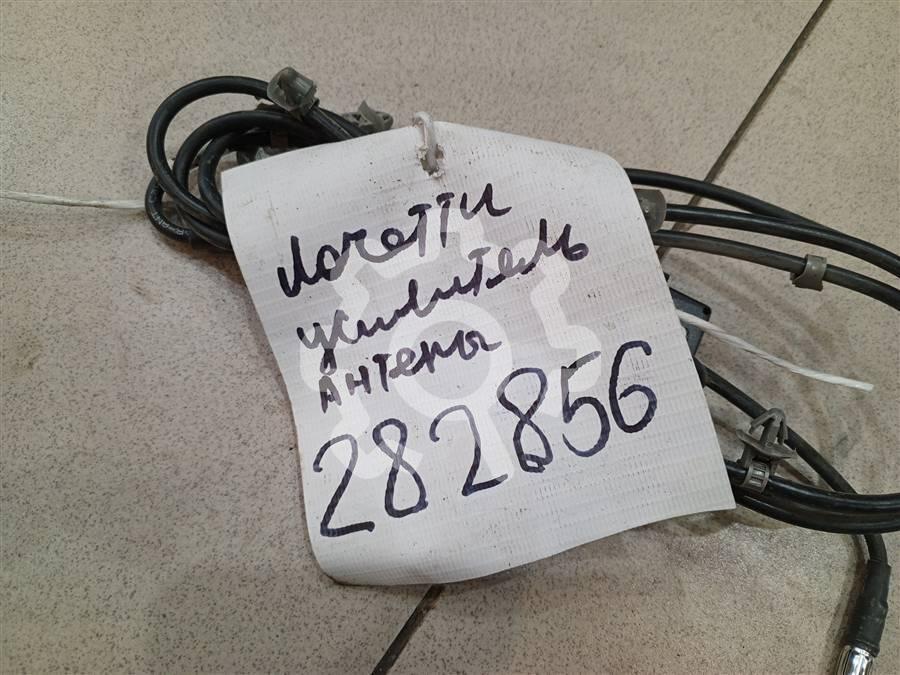 Лачетти
усилитель
Антены
282856